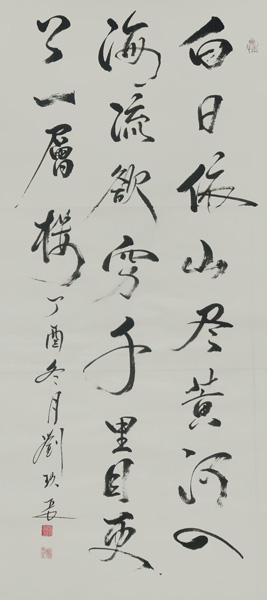 白日依山尽黄河入
海流欲穷千里目更
上一層楼
丁酉冬月劉